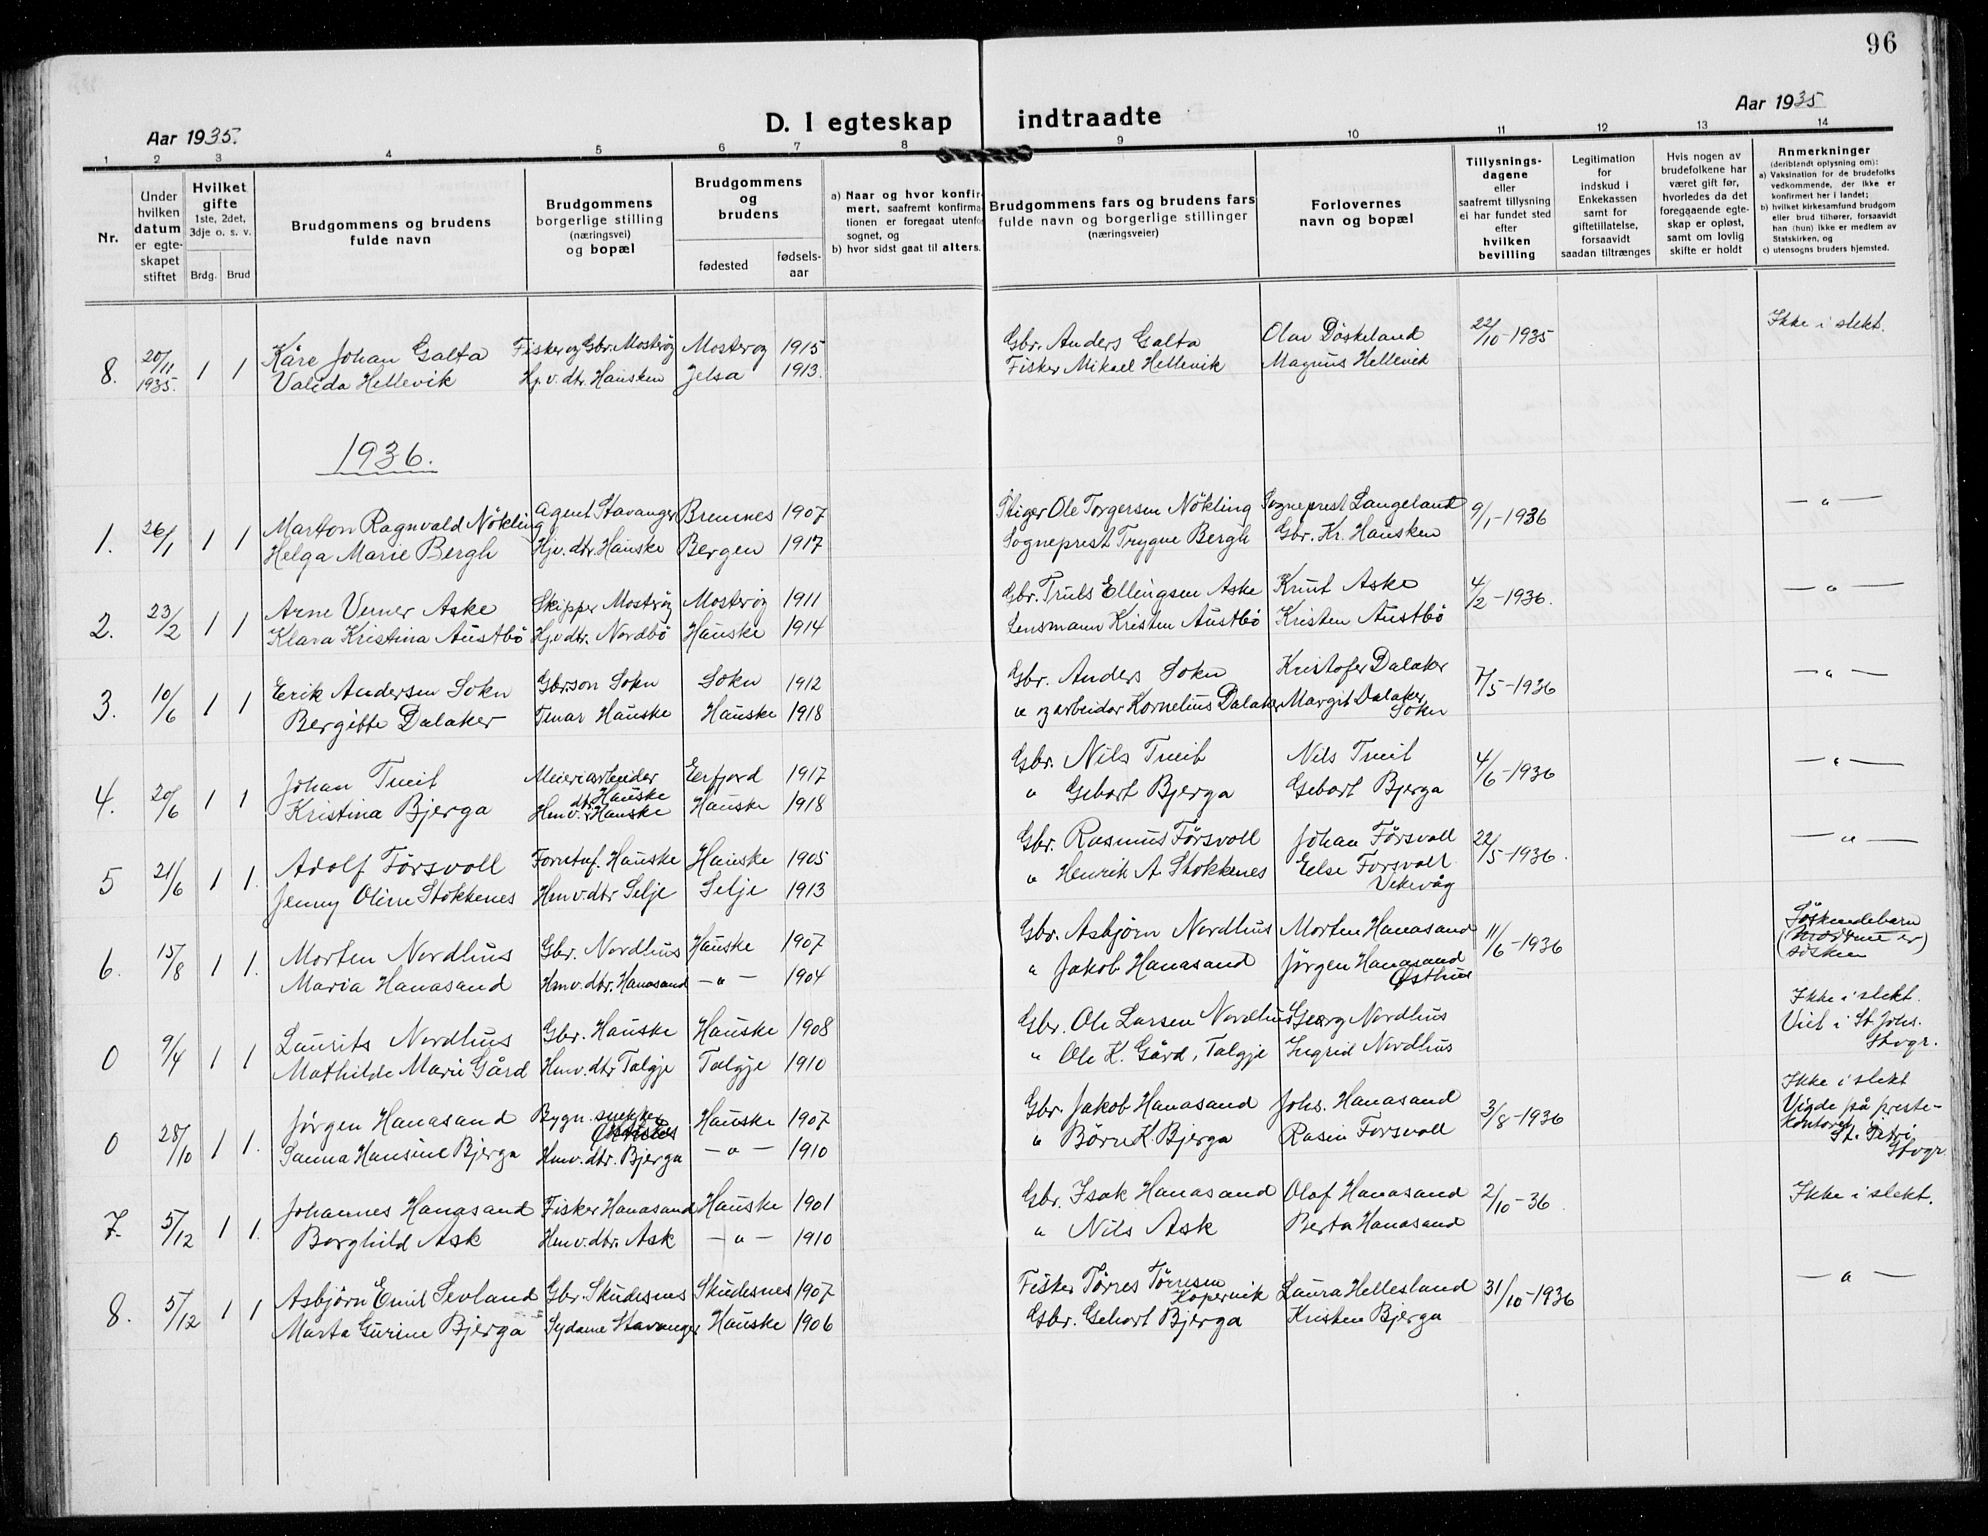 96
Aar 1935.
D. I egteskap indtraadte
Aar 1935
1 2 3 4 5 6 7 8 9 10 11 12 13 14
Nr.
Under hvilken datum er egte-skapet stiftet
Hvilket gifte
1ste, 2det, 3dje o. s. v.
Brdg. Brud
Brudgommens og brudens
fulde navn
Brudgommens
borgerlige stilling
(næringsvei)
og bopæl
Brudgommens
og
brudens
fødested
fødsels-
aar
a) Naar og hvor konfir-
mert, saafremt konfirma-
tionen er foregaat utenfor
sognet, og
b) hvor sidst gaat til alters.
Brudgommens fars og brudens fars
fulde navn og borgerlige stillinger
(næringsveier)
Forlovernes
navn og bopæl
Tillysnings-
dagene
eller
saafremt tillysning
ei har fundet sted
efter
hvilken
bevilling
Legitimation
for
indskud i
Enkekassen
samt for
giftetillatelse,
forsaavidt
saadan tiltrænges
Hvis nogen av
brudefolkene har
været gift før,
hvorledes da det
foregaaende egte-
skap er opløst,
samt om lovlig
skifte er holdt
Anmerkninger
(deriblandt oplysning om):
a) Vaksination for de brudefolks
vedkommende, der ikke er
konfirmert her i landet;
b) hvilket kirkesamfund brudgom
eller brud tilhører, forsaavidt
han (hun) ikke er medlem av
Statskirken, og
c) utensogns bruders hjemsted.
8. 20/11 1935. 1 1 Kåre Johan Galta Fisker og Gbr. Mosterøy Mosterøy 1915 Gbr. Anders Galta Olav Døskeland 22/10-1935 Ikke i slekt.
Valida Hellevik Hj.v. dtr. Hausken Jelsa 1913. Fisker Mikael Hellevik Magnus Hellevik
1936.
1. 26/1 1 1 Marton Ragnvald Nökling Agent Stavanger Bremnes 1907 Stiger Ole Torgersen Nökling Sogneprest Langeland 9/1-1936 —"—
Helga Marie Bergh Hjv. dtr. Hauske Bergen 1917 Sogneprest Trygve Bergh Gbr. Kr. Hausken
2. 23/2 1 1 Arne Verner Aske Skipper Mosterøy Mosterøy 1911 Gbr. Truls Ellingsen Aske Knut Aske 4/2-1936. —"—
Klara Kristina Austbö Hjv. dtr. Nordbö Hauske 1914 Lensmann Kristen Austbö Kristen Austbö
3. 10/6 1 1 Erik Andersen Sokn Gbrson Sokn Sokn 1912 Gbr. Anders Sokn Kristofer Dalaker 7/5-1936 —"—
Bergitte Dalaker Tenar Hauske Hauske 1918 " og arbeidar Kornelius Dalaker Margit Dalaker
Sokn
4. 20/6 1 1 Johan Tveit Meieriarbeider Hauske Erfjord 1917 Gbr. Nils Tveit Nils Tveit 4/6-1936 —"—
Kristina Bjerga Hmv. dtr. Hauske Hauske 1918 " Gebart Bjerga Gebart Bjerga
5 21/6 1 1. Adolf Førsvoll Forretnf. Hauske Hauske 1905 Gbr. Rasmus Førsvoll Johan Førsvoll 22/5-1936. —"—
Jenny Oline Stokkenes Hmv. dtr Selje Selje 1913 " Henrik A Stokkenes Else Førsvoll
Vikevåg
6. 15/8 1 1. Morten Nordhus Gbr. Nordhus Hauske 1907 Gbr. Asbjørn Nordhus Morten Hanasand 11/6-1936 Söskendebarn
Maria Hanasand Hmv. dtr. Hanasand —"— 1904 " Jakob Hanasand Jørgen Hanasand (Mødrene er)
Østhus søsken
0 9/4 1 1 Laurits Nordhus Gbr. Hauske Hauske 1908 Gbr. Ole Larsen Nordhus Georg Nordhus Ikke i slekt.
Mathilde Marie Gård Hmv. dtr Talgje Talgje 1910 " Ole K. Gård, Talgje Ingrid Nordhus Viet i St. Johs.
Stvgr.
0 28/10 1 1. Jørgen Hanasand Bygn. snekker Hauske 1907 Gbr. Jakob Hanasand Johs. Hanasand 3/8-1936 Ikke i slekt
Sanna Hansine Bjerga Hmv. dtr. Bjerga —"— 1910 " Børn K. Bjerga Rasin Forsvoll Vigde på preste-
kontoret
St. Petri
Stvgr.
7. 5/12 1 1. Johannes Hanasand Fisker Hanasand Hauske 1901 Gbr. Isak Hanasand Olaf Hanasand 2/10-36 Ikke i slekt.
Borghild Ask Hmv. dtr. Ask —"— 1910 " Nils Ask Berta Hanasand
8. 5/12 1 1 Asbjörn Emil Sevland Gbr. Skudesnes Skudesnes 1907 Fisker Tørres Tørresen Kopervik Laura Hellesland 31/10-1936 —"—
Marta Gurine Bjerga Sydame Stavanger Hauske 1906 Gbr. Gehart Bjerga Kristen Bjerga